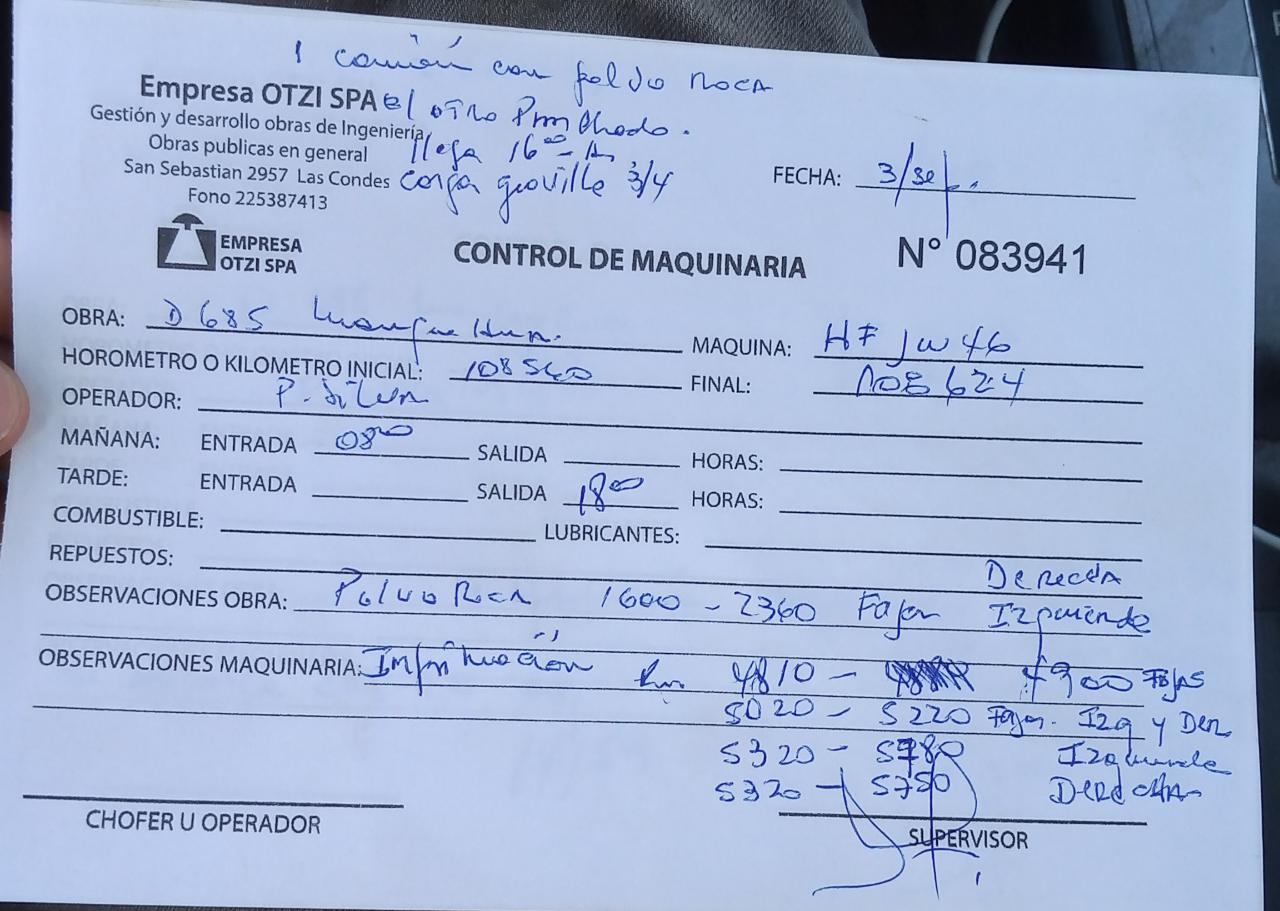 1 camión con polvo Roca
Empresa OTZI SPA el otro Pinchado.
Gestión y desarrollo obras de Ingeniería
Obras publicas en general llega 16:00 hr
San Sebastian 2957 Las Condes carga gravilla 3/4
Fono 225387413
FECHA: 3/sep.
EMPRESA
OTZI SPA
CONTROL DE MAQUINARIA
N° 083941
OBRA: D 685 MAQUINA: HF JW 46
HOROMETRO O KILOMETRO INICIAL: 108540 FINAL: 108624
OPERADOR: P. Silva
MAÑANA: ENTRADA 08:00 SALIDA HORAS:
TARDE: ENTRADA SALIDA 18:00 HORAS:
COMBUSTIBLE: LUBRICANTES:
REPUESTOS:
Derecha
OBSERVACIONES OBRA: Polvo Roca 1600 - 2360 Fajas Izquierda
OBSERVACIONES MAQUINARIA: Imprimación Km 4810 - 4900 Fajas
5020 - 5220 Fajas. Izq y Der
5320 - 5780 Izquierda
5320 - 5750 Derecha
CHOFER U OPERADOR
SUPERVISOR